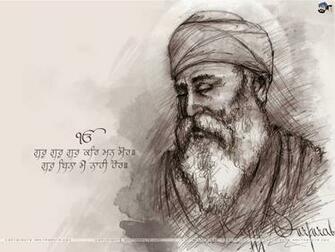 ੴ
ਗੁਰੁ ਗੁਰੁ ਗੁਰੁ ਕਰਿ ਮਨ ਮੋਰ॥
ਗੁਰੁ ਬਿਨਾ ਮੈ ਨਾਹੀ ਹੋਰ॥